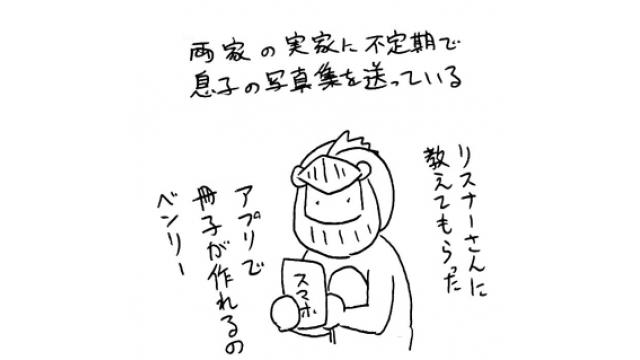 両家の実家に不定期で
息子の写真集を送っている
リスナーさんに
教えてもらった
アプリで
冊子が作れるの
ベンリー
スマホ